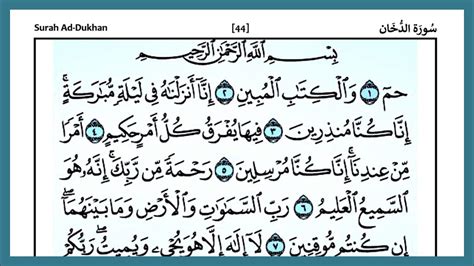 Surah Ad-Dukhan [44] سُورَة الدُّخَان
بِسْمِ اللَّهِ الرَّحْمَٰنِ الرَّحِيمِ
حمٓ ۝١ وَالْكِتَابِ الْمُبِينِ ۝٢ إِنَّآ أَنزَلْنَاهُ فِي لَيْلَةٍ مُّبَارَكَةٍ ۚ
إِنَّا كُنَّا مُنذِرِينَ ۝٣ فِيهَا يُفْرَقُ كُلُّ أَمْرٍ حَكِيمٍ ۝٤ أَمْرًا
مِّنْ عِندِنَآ ۚ إِنَّا كُنَّا مُرْسِلِينَ ۝٥ رَحْمَةً مِّن رَّبِّكَ ۚ إِنَّهُ هُوَ
السَّمِيعُ الْعَلِيمُ ۝٦ رَبِّ السَّمَاوَاتِ وَالْأَرْضِ وَمَا بَيْنَهُمَآ ۖ
إِن كُنتُم مُّوقِنِينَ ۝٧ لَآ إِلَٰهَ إِلَّا هُوَ يُحْيِي وَيُمِيتُ ۖ رَبُّكُمْ